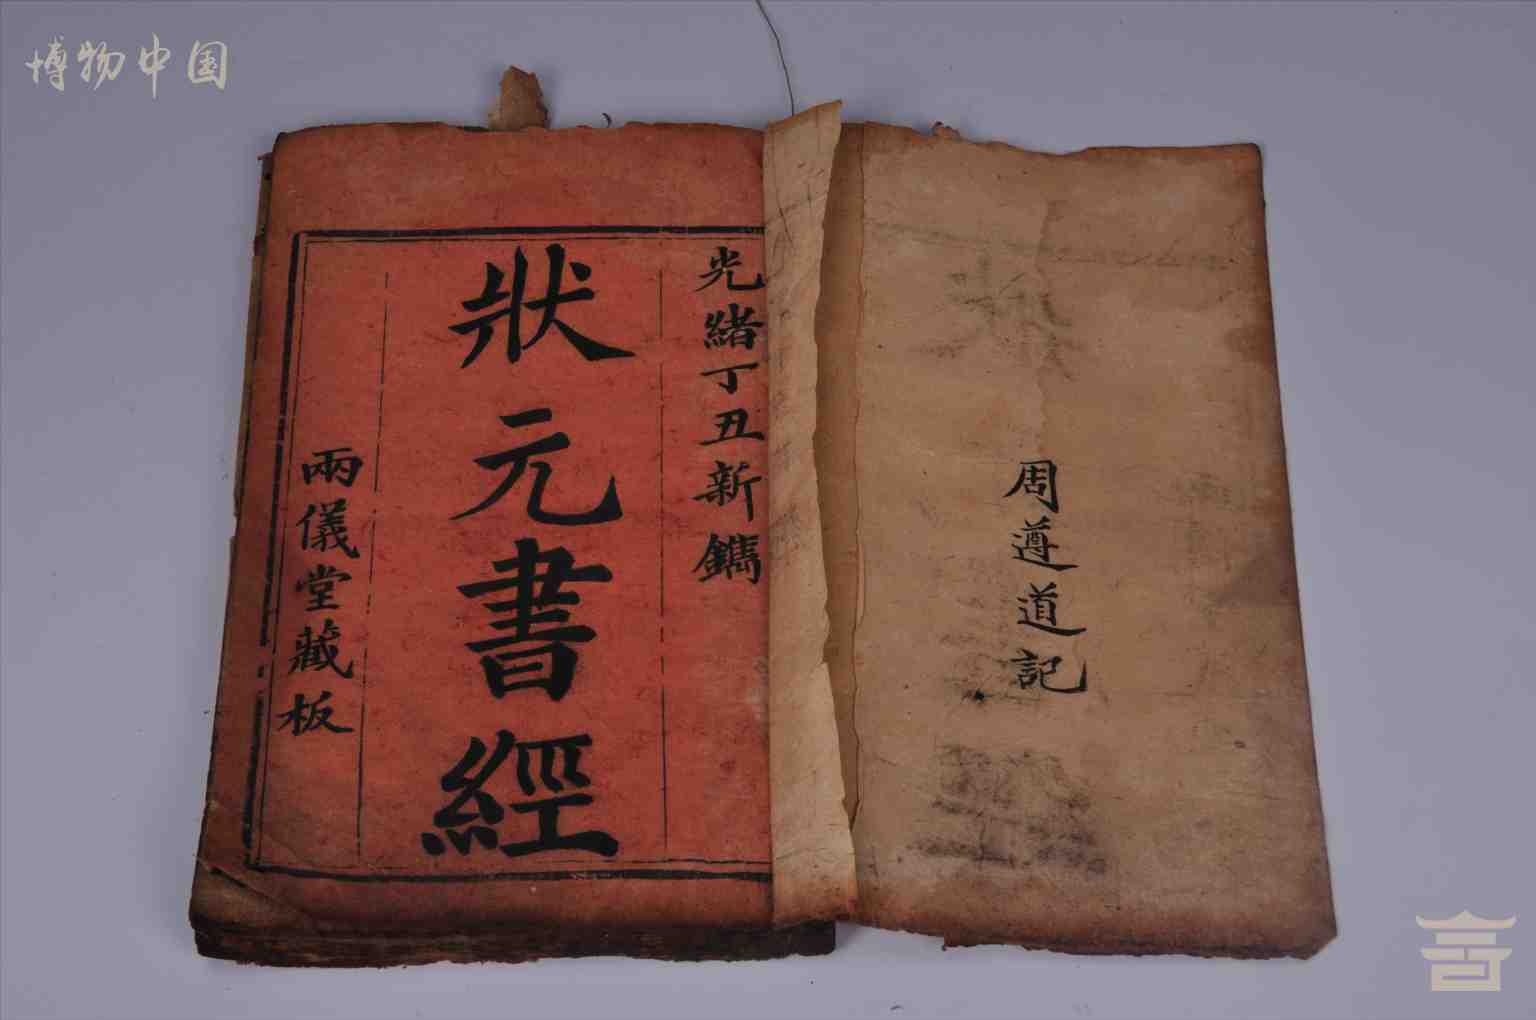 博物中国
周遵道記
光緒丁丑新鐫
狀元書經
兩儀堂藏板